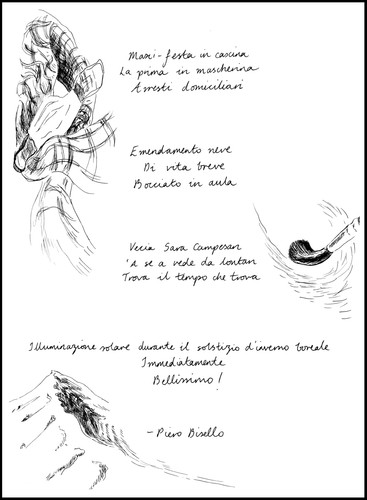 Maxi-festa in cascina
La prima in mascherina
Arresti domiciliari
Emendamento neve
Di vita breve
Bocciato in aula
Vecia Sara Campesan
'A se a vede da lontan
Trova il tempo che trova
Illuminazione solare durante il solstizio d'inverno boreale
Immediatamente
Bellissimo!
- Piero Bisello